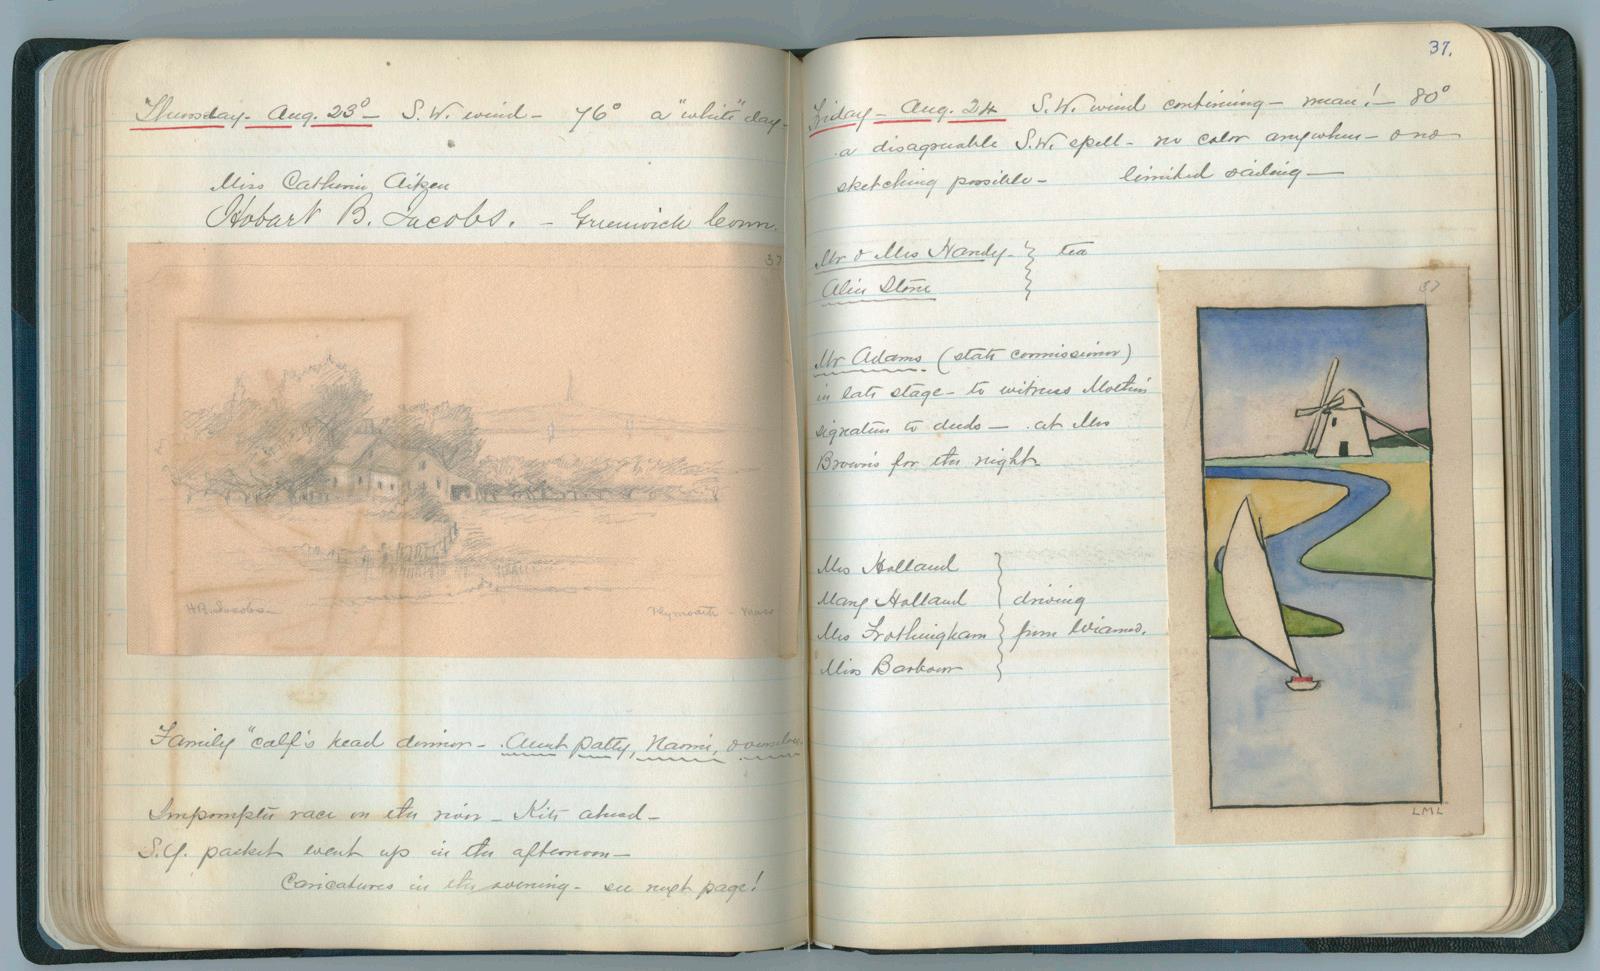 Thursday - Aug. 23° - S.W. wind - 76° a "white" day -
Miss Catherin Aitken
Hobart B. Jacobs. - Greenwich Conn.
37
H.B. Jacobs -
Plymouth - Mass
Family "calf's head dinner - Aunt Patty, Naomi, ourselves.
Impromptu race on the river - Kits ahead -
S.Y. packet went up in the afternoon -
Caricatures in the evening - see next page!
37.
Friday - Aug. 24 S.W. wind continuing - mean! - 80°
a disagreeable S.W. spell - no color anywhere - & no
sketching possible - limited sailing -
Mr & Mrs Handy - tea
Alice Stone
Mr Adams (state commissioner)
in late stage - to witness Mother's
signature to deeds - at Mrs
Brown's for the night.
Mrs Holland
Mary Holland driving
Mrs Frothingham from Wianno.
Miss Barbour
37
LML